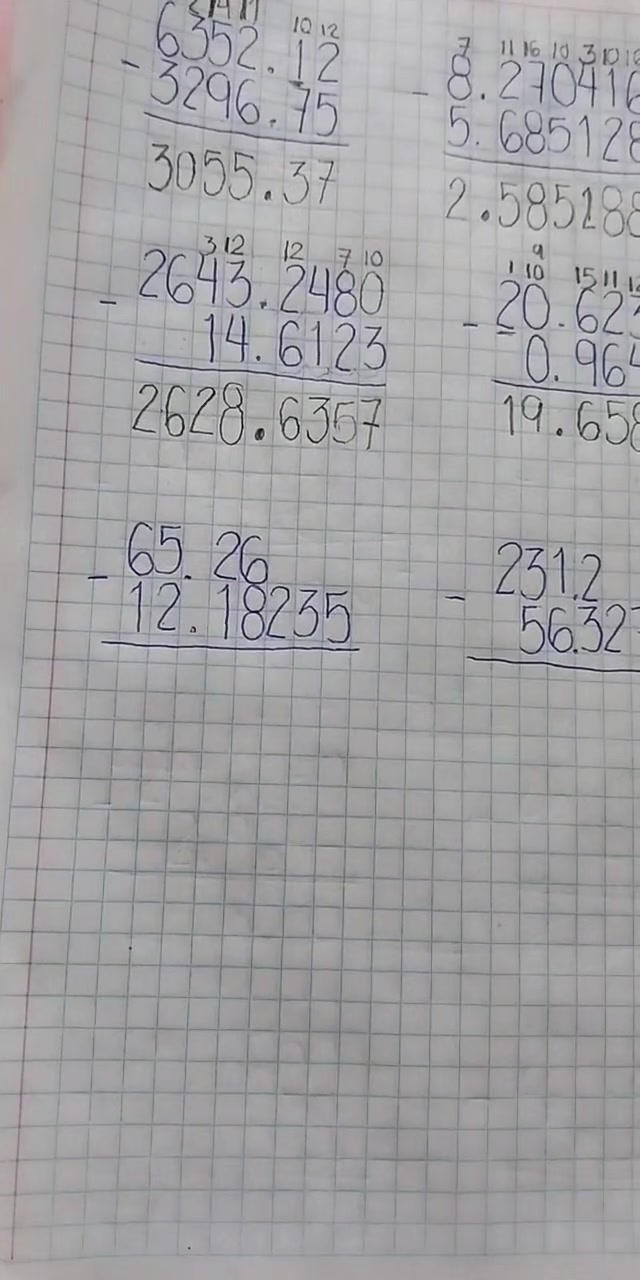 10 12
6352.12
- 3296.75
3055.37
7 11 16 10 3 10
- 8.270416
5.685128
2.585288
3 12 12 7 10
2643.2480
- 14.6123
2628.6357
9
1 10 15 11
- 20.62
0.964
19.658
65.26
- 12.18235
231.2
- 56.32